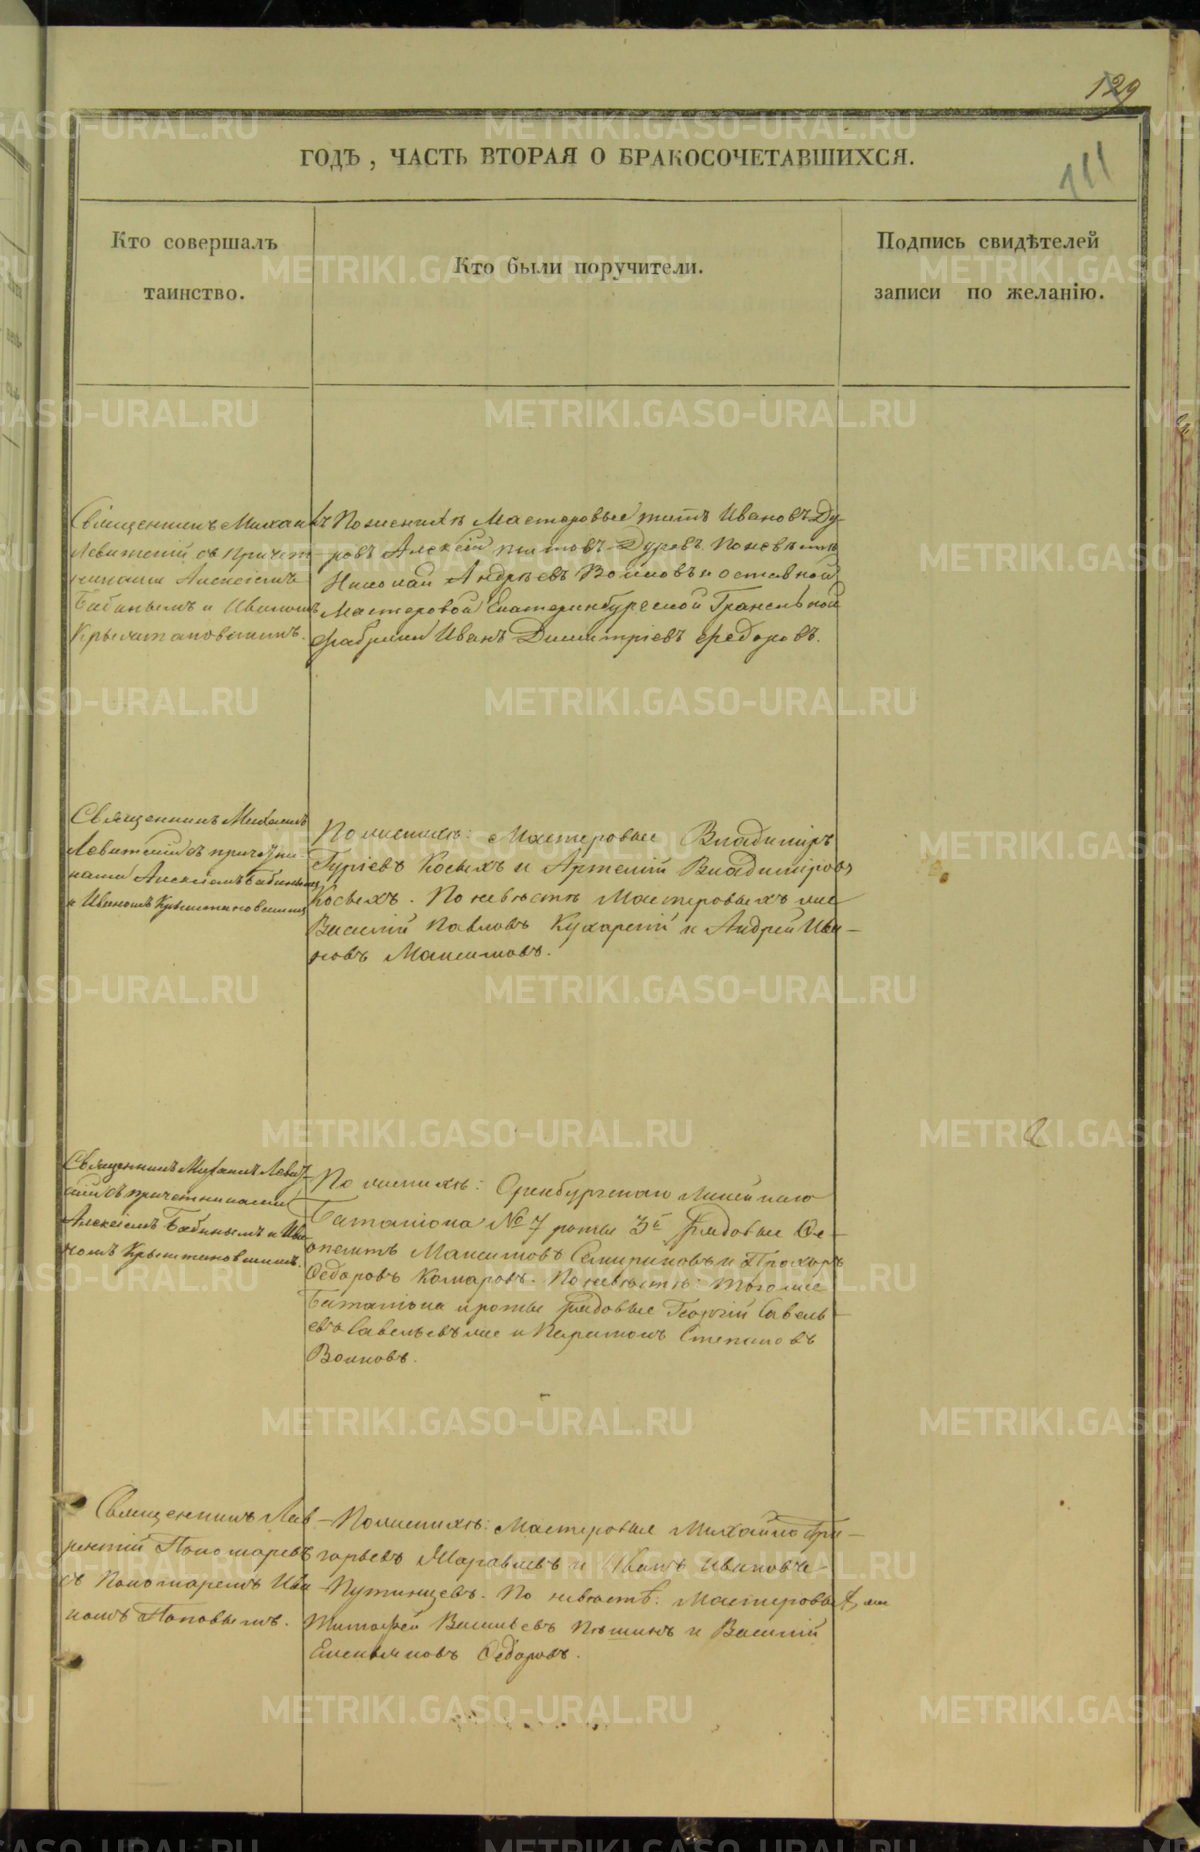 129
111
ГОДѢ, ЧАСТЬ ВТОРАЯ О БРАКОСОЧЕТАВШИХСЯ.
Кто совершалъ
таинство.
Кто были поручители.
Подпись свидѣтелей
записи по желанію.
Священникъ Михаилъ
Левитскій съ причет-
никами Алексіемъ
Бабинымъ и Иваномъ
По женихѣ Мастеровые Титъ Ивановъ Ду-
ровъ Алексій Титовъ Дуровъ. По невѣстѣ
Николай Андреевъ Волковъ и отставной
Мастеровой Екатеринбургской Гранильной
фабрики Иванъ Димитріевъ Федоровъ.
Священникъ Михаилъ
Левитскій съ причетни-
ками Алексіемъ Бабинымъ
и Иваномъ
По женихѣ: Мастеровые Владиміръ
Гуріевъ Косыхъ и Артемій Владиміровъ
Косыхъ. По невѣстѣ Мастеровые же
Василій Павловъ Кухарскій и Андрей Ива-
новъ Максимовъ.
Священникъ Михаилъ Левит-
скій съ причетниками
Алексіемъ Бабинымъ и Ива-
номъ
По женихѣ: Оренбургскаго Линейнаго
Баталіона № 7 роты 3й Рядовые
Максимовъ и Прохоръ
Ѳедоровъ Комаровъ. По невѣстѣ: того же
Баталіона и роты рядовые Георгій Савель-
евъ Савельевъ же и Харитонъ Степановъ
Волковъ.
Священникъ Лав-
рентій Пономаревъ
съ Пономаремъ Ива-
номъ Поповымъ.
По женихѣ: Мастеровые Михайло Гри-
горьевъ и Иванъ Ивановъ
Путинцевъ. По невѣстѣ: Мастеровые же
Тимофей Васильевъ и Василій
Емельяновъ Ѳедоровъ.
METRIKI.GASO-URAL.RU